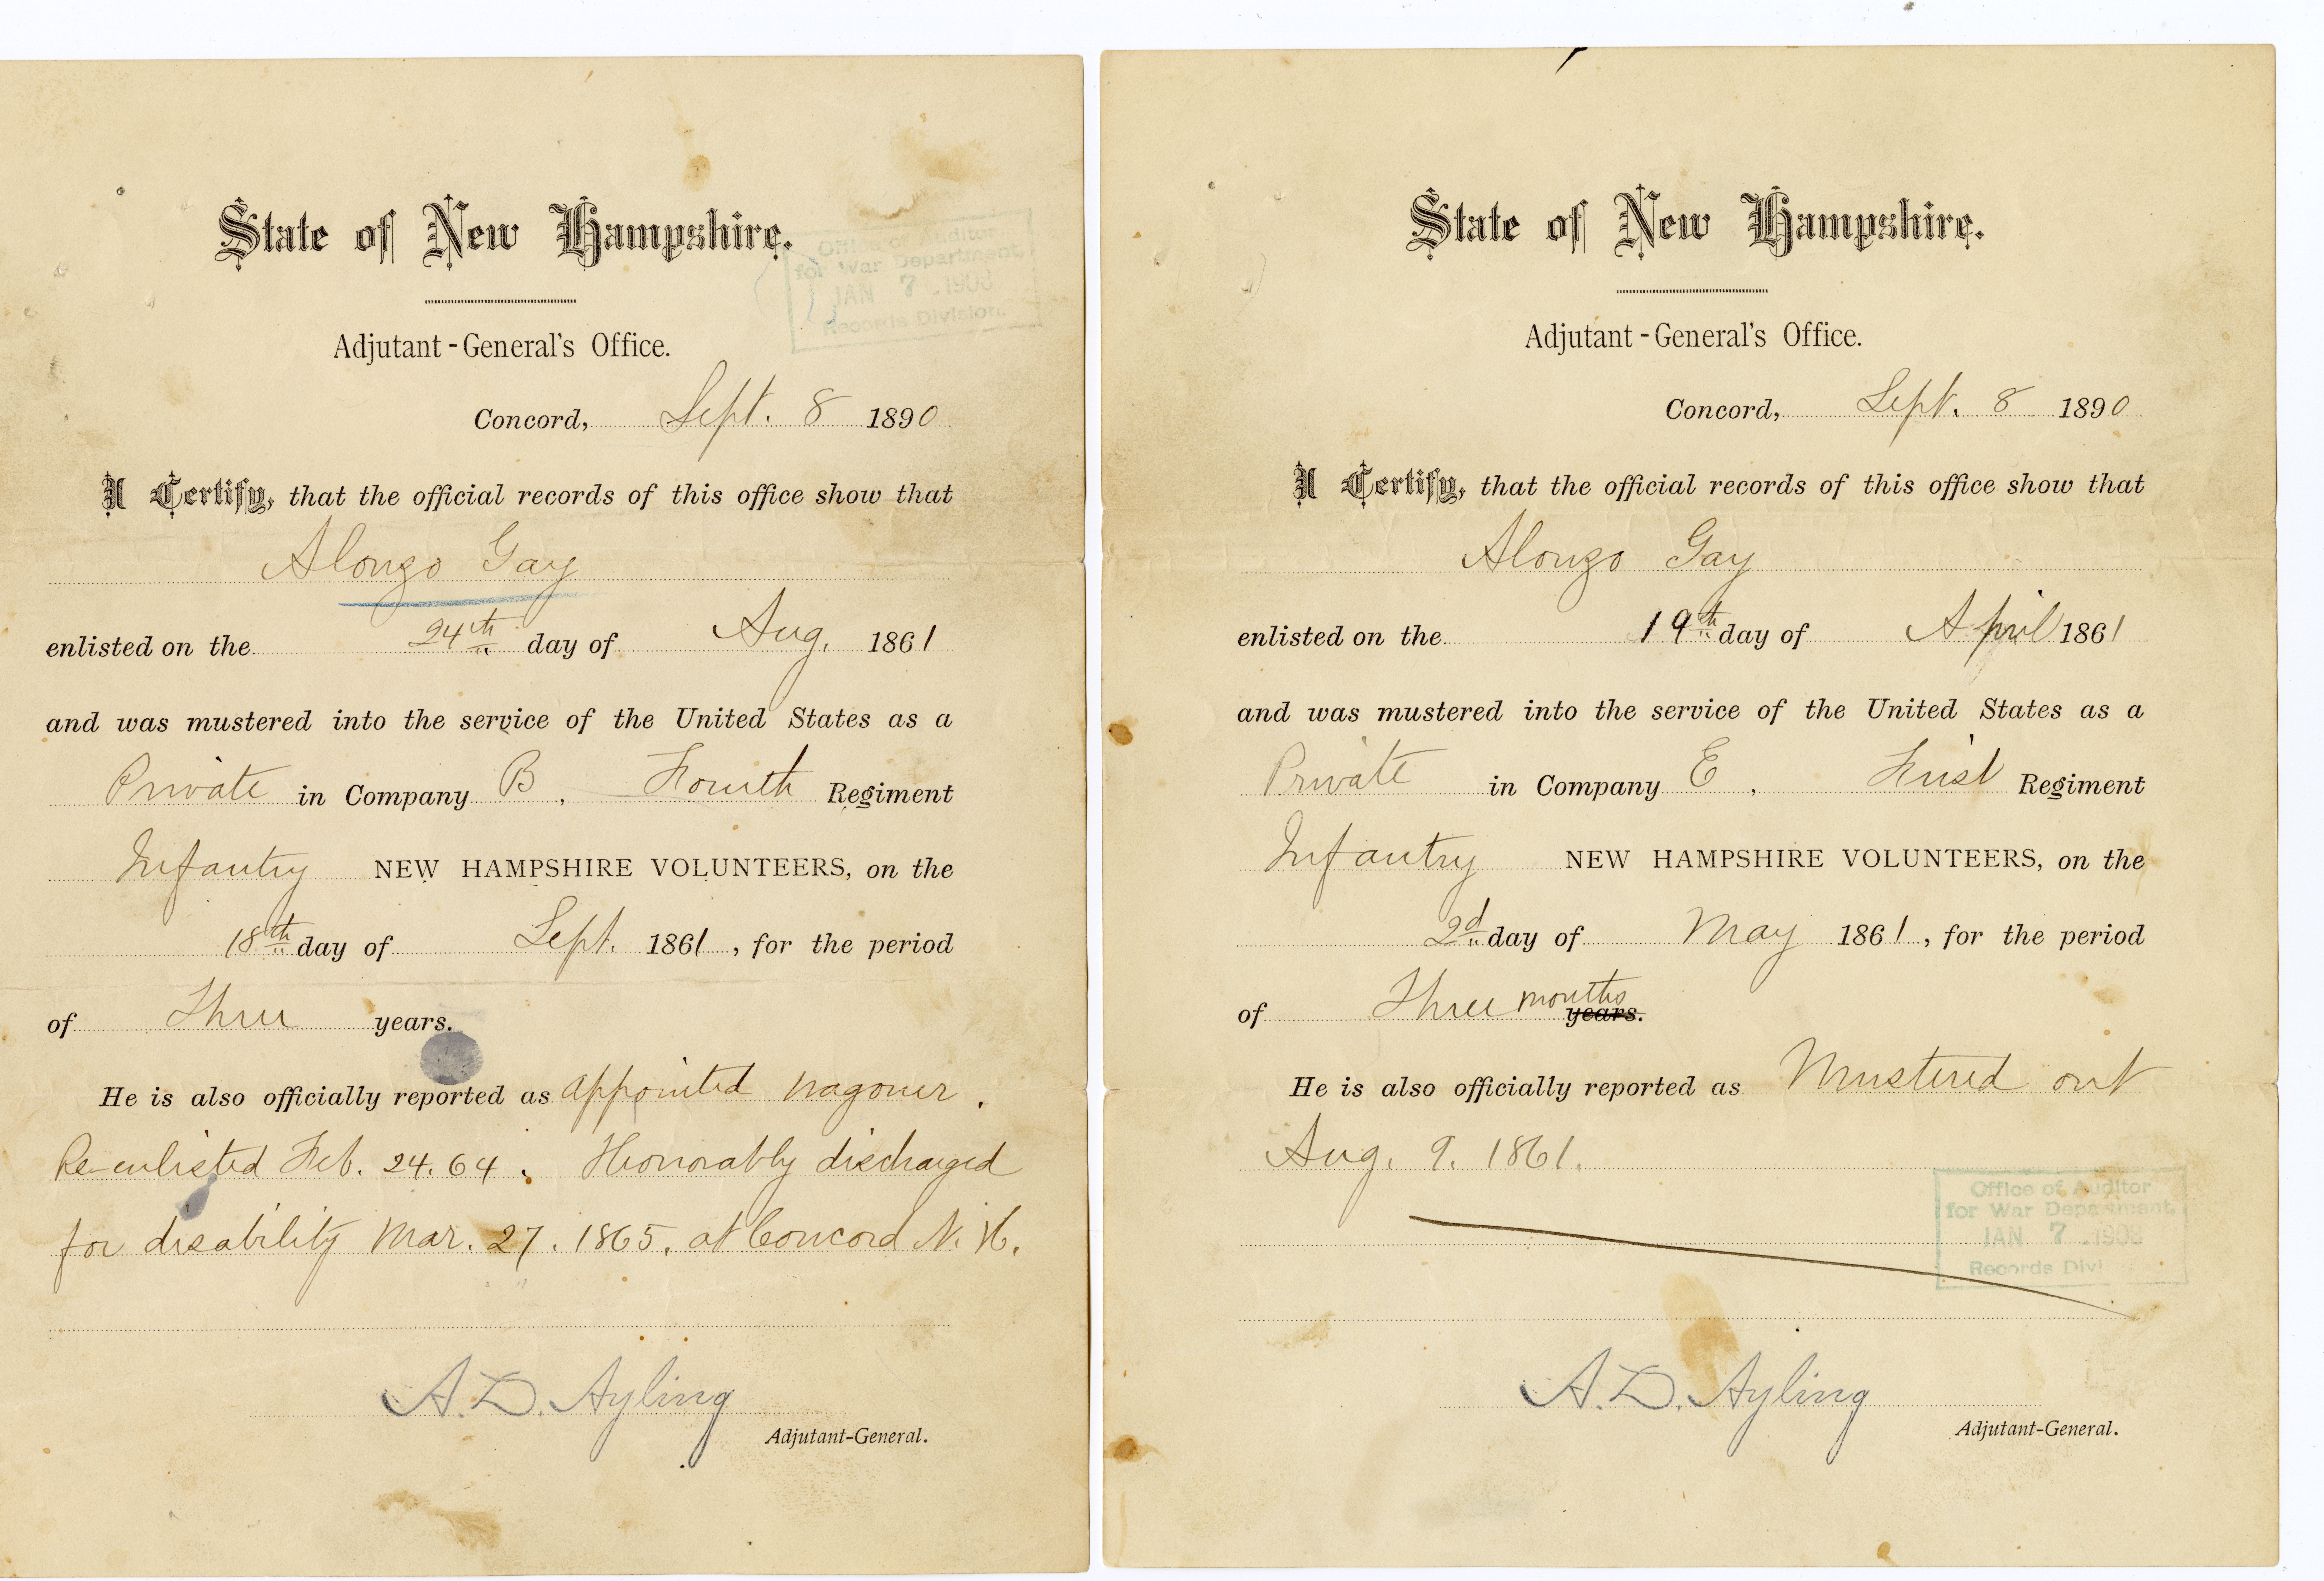 State of New Hampshire.
Office of Auditor
for War Department,
JAN 7 1908
Records Division.
Adjutant-General's Office.
Concord, Sept. 8 1890
I Certify, that the official records of this office show that
Alonzo Gay
enlisted on the 24th day of Aug. 1861
and was mustered into the service of the United States as a
Private in Company B, Fourth Regiment
Infantry NEW HAMPSHIRE VOLUNTEERS, on the
18th day of Sept. 1861, for the period
of Three years.
He is also officially reported as appointed wagoner.
Re-enlisted Feb. 24. 64. Honorably discharged
for disability Mar. 27. 1865. at Concord N. H.
A. D. Ayling
Adjutant-General.
State of New Hampshire.
Adjutant-General's Office.
Concord, Sept. 8 1890
I Certify, that the official records of this office show that
Alonzo Gay
enlisted on the 19th day of April 1861
and was mustered into the service of the United States as a
Private in Company E, First Regiment
Infantry NEW HAMPSHIRE VOLUNTEERS, on the
2d day of May 1861, for the period
of Three months years.
He is also officially reported as Mustered out
Aug. 9. 1861.
Office of Auditor
for War Department,
JAN 7 1908
Records Divi
A. D. Ayling
Adjutant-General.